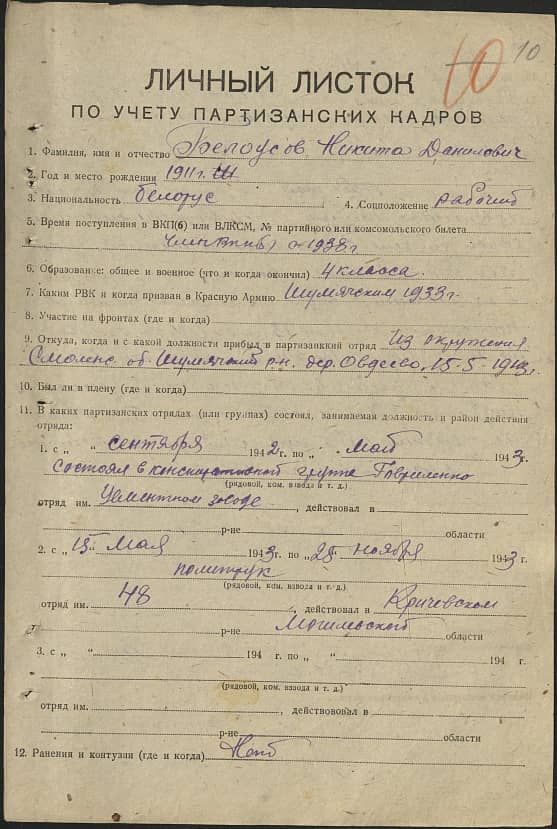 10 10
ЛИЧНЫЙ ЛИСТОК
ПО УЧЕТУ ПАРТИЗАНСКИХ КАДРОВ
1. Фамилия, имя и отчество Белоусов Никита Данилович
2. Год и место рождения 1911 г.
3. Национальность белорус 4. Соцположение рабочий
5. Время поступления в ВКП(б) или ВЛКСМ, № партийного или комсомольского билета
Член ВКП(б) с 1938 г
6. Образование: общее и военное (что и когда окончил) 4 класса.
7. Каким РВК и когда призван в Красную Армию Шумячским 1933 г.
8. Участие на фронтах (где и когда)
9. Откуда, когда и с какой должности прибыл в партизанский отряд Из окружения
Смоленс. об. Шумячский р-н. дер. Овдеево, 15-5-
10. Был ли в плену (где и когда)
11. В каких партизанских отрядах (или группах) состоял, занимаемая должность и район действия
отряда:
1. с „ “ сентября 1942 г. по „ “ май 1943 г.
Состоял в группе Гавриленко
(рядовой, ком. взвода и т. д.)
отряд им. Цементном заводе, действовал в
р-не области
2. с „15“ мая 1943 г. по „25“ ноября 1943 г.
политрук
(рядовой, ком. взвода и т. д.)
отряд им. 48, действовал в Кричевском
р-не Могилевской области
3. с „ “ 194 г. по „ “ 194 г.
(рядовой, ком. взвода и т. д.)
отряд им. , действововал в
р-не области
12. Ранения и контузии (где и когда)